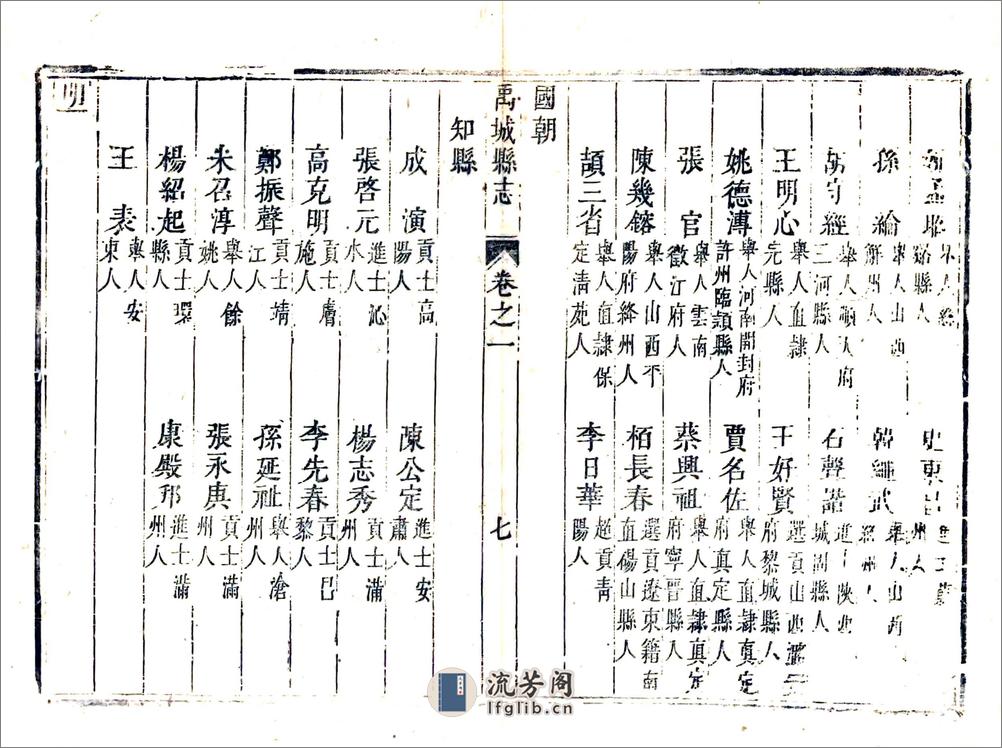 縣人 史東
州人
孫綸 舉人山西 韓繼武 舉人山西
解州人 絳州人
胡守經 舉人順天府 石聲諧 進士陝西
三河縣人 城固縣人
王明心 舉人直隸 王好賢 選貢山西潞安
完縣人 府黎城縣人
姚德溥 舉人河南開封府 賈名佐 舉人直隸真定
許州臨頴縣人 府真定縣人
張官 舉人雲南 蔡興祖 舉人直隸真定
徵江府人 府寧晉縣人
陳幾鎔 舉人山西平 栢長春 選貢遼東籍南
陽府絳州人 直碭山縣人
頡三省 舉人直隸保 李日華 超貢靑
定清苑人 陽人
國朝
禹城縣志 卷之一 七
知縣
成演 貢士高 陳公定 進士安
陽人 肅人
張啓元 進士沁 楊志秀 貢士滿
水人 州人
高克明 貢士膚 李先春 貢士巳
施人 黎人
鄭振聲 貢士靖 孫延祉 舉人滄
江人 州人
朱召淳 舉人餘 張永 貢士滿
姚人 州人
楊紹起 貢士環 康殿邦 進士滿
縣人 州人
王表 舉人安
東人
流芳阁
lfglib.cn